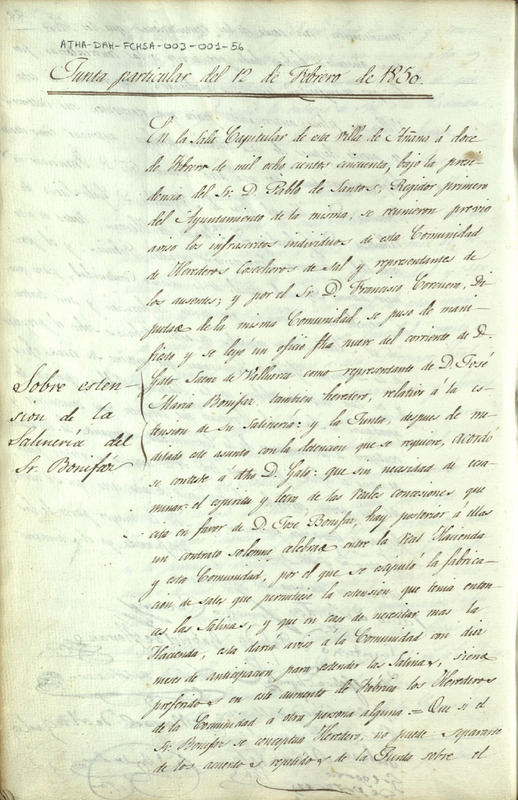 ATHA-DAH-FCHSA-003-001-56
Junta particular del 12 de Febrero de 1850.
En la Sala Capitular de esta villa de Añana á doce
de Febrero de mil ocho cientos cincuenta, bajo la presi-
dencia del Sr. D. Pablo de Santos, Regidor primero
del Ayuntamiento de la misma, se reunieron previo
aviso los infrascritos individuos de esta Comunidad
de Herederos Cosecheros de Sal y representantes de
los ausentes; y por el Sr. D. Francisco Corcuera, Di-
putado de la misma Comunidad, se puso de mani-
fiesto y se leyó un oficio fha nueve del corriente de D.
Gato Saenz de como representante de D. José
Maria Bonifaz tambien heredero, relativo á la es-
tension de su Salinería: y la Junta, despues de me-
ditado este asunto con la detencion que se requiere, acordó
se conteste á dho D. Gato: que sin necesidad de exa-
minar el espiritu y letra de las Reales concesiones que
cita en favor de D. Jose Bonifaz, hay posterior á ellas
un contrato solemne celebrado entre la Real Hacienda
y esta Comunidad, por el que se estipuló la fabrica-
cion de sales que permitiese la estension que tenia enton-
ces las Salinas, y que en caso de necesitar mas la
Hacienda, esta daria aviso á la Comunidad con diez
meses de anticipacion para estender las Salinas, siendo
preferidos en este aumento de Fábrica los Herederos
de la Comunidad á otra persona alguna := Que si el
Sr. Bonifaz se conceptua Heredero, no puede separarse
de los acuerdos repetidos de la Junta sobre el
Sobre esten-
sion de la
Salinería del
Sr. Bonifáz